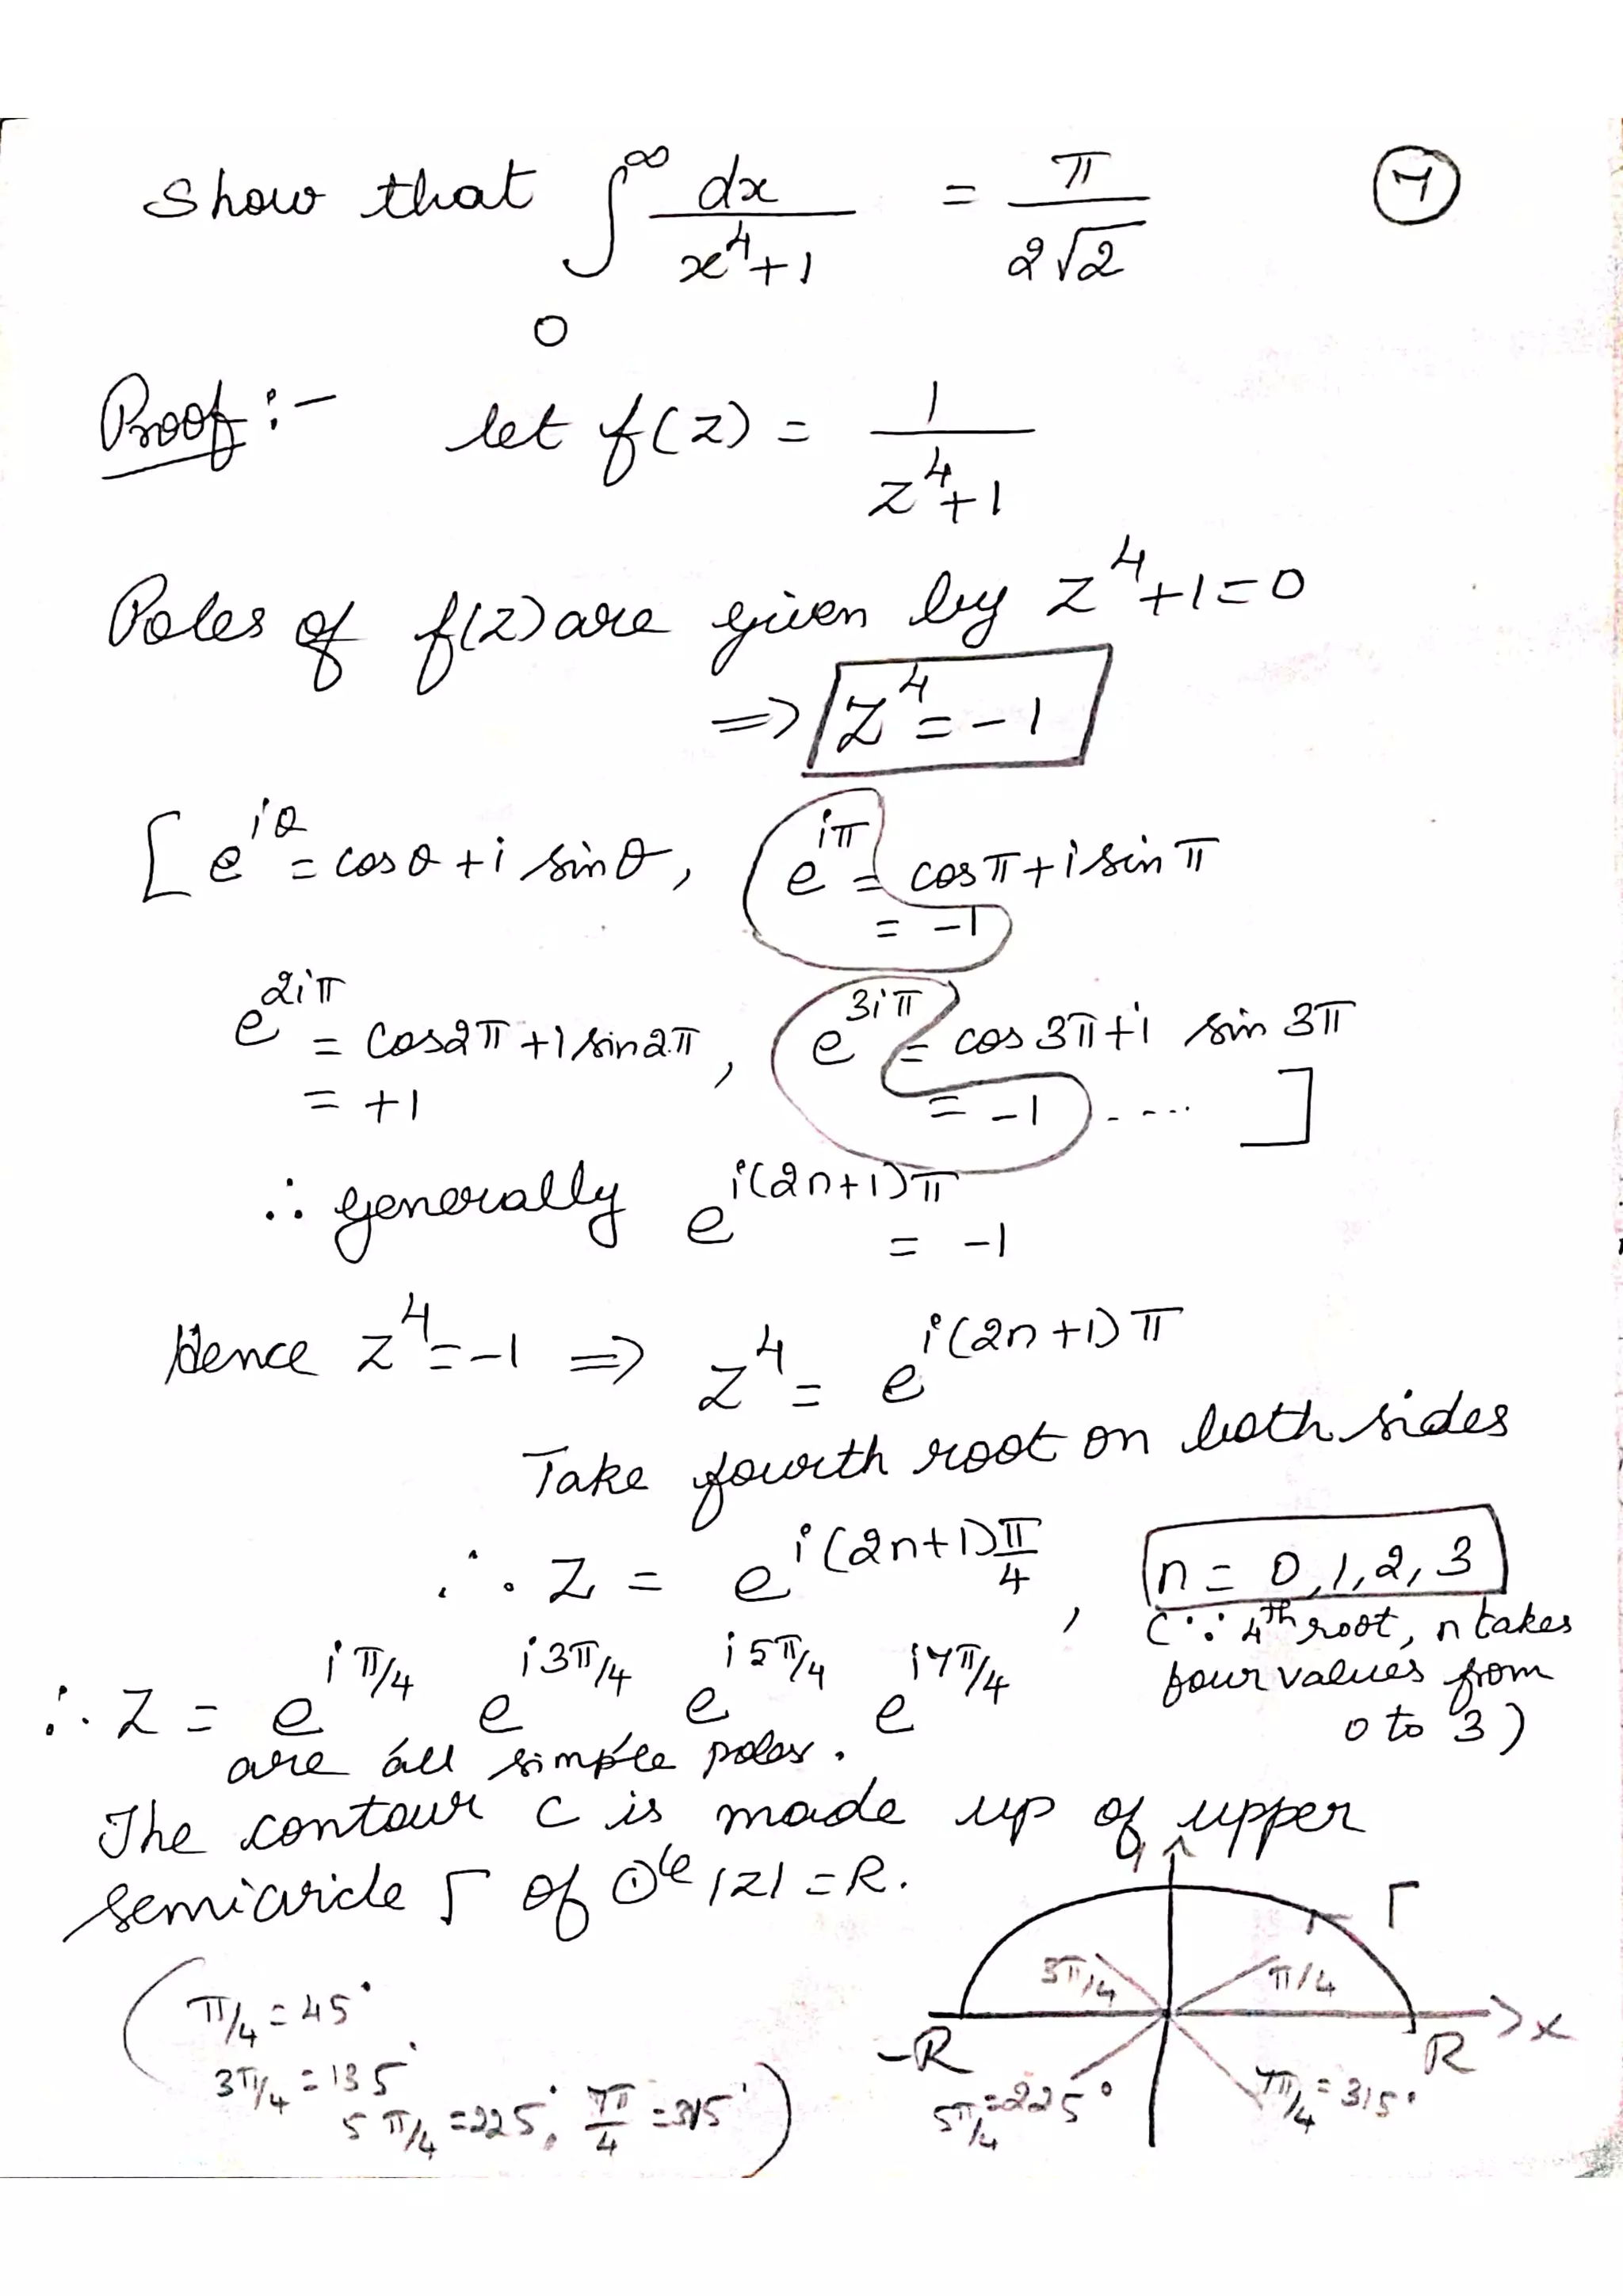 Show that ∫₀^∞ dx/(x⁴+1) = π/(2√2) (7)
Proof :- let f(z) = 1/(z⁴+1)
Poles of f(z) are given by z⁴+1=0
=> z⁴ = -1
[ e^{iθ} = cosθ + i sinθ, e^{iπ} = cosπ + i sinπ
= -1
e^{2iπ} = cos2π + i sin2π, e^{3iπ} = cos 3π + i sin 3π
= +1 = -1 ..... ]
∴ generally e^{i(2n+1)π} = -1
Hence z⁴ = -1 => z⁴ = e^{i(2n+1)π}
Take fourth root on both sides
∴ z = e^{i(2n+1)π/4}, n = 0,1,2,3
(∵ 4th root, n takes
four values from
0 to 3)
∴ z = e^{iπ/4} e^{i3π/4} e^{i5π/4} e^{i7π/4}
are all simple poles.
The contour C is made up of upper
semicircle Γ of ⊙le |z| = R.
(π/4 = 45°
3π/4 = 135°
5π/4 = 225°, 7π/4 = 315°)
Γ
3π/4 π/4
-R R x
5π/4 = 225° 7π/4 = 315°